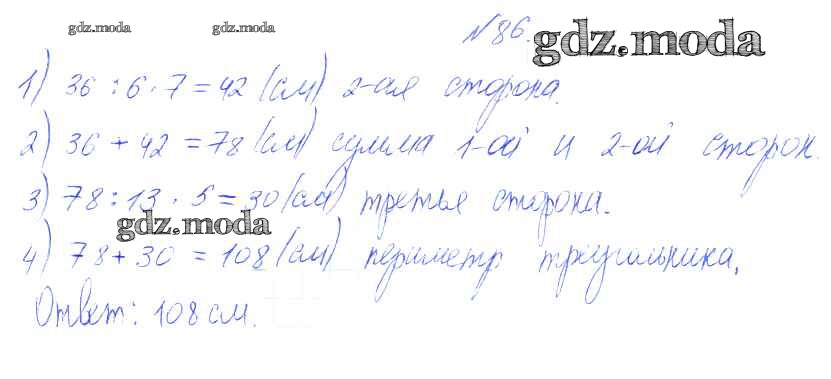 gdz.moda gdz.moda №86. gdz.moda
1) 36 : 6 · 7 = 42 (см) 2-ая сторона.
2) 36 + 42 = 78 (см) сумма 1-ой и 2-ой сторон.
3) 78 : 13 · 5 = 30 (см) третья сторона.
gdz.moda
4) 78 + 30 = 108 (см) периметр треугольника.
Ответ: 108 см.